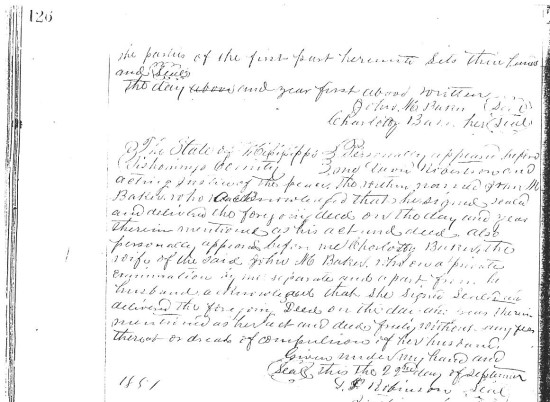 126
the parties of the first part herewith Sets their hands
and Seals
the day above and year first above written
John M Baker (Seal)
Charlotty Baker her (Seal)
The State of Mississippi } Personally appeared before
Tishomingo County } an
acting Justice of the peace the within named John M
Baker who acknowledged that he signed seald
and deliverd the foregoing deed on the day and year
therein mentioned as his act and deed also
personally appeared before me Charlotte Baker, the
wife of the said John M Baker, who on a private
examination by me separate and apart from her
husband, acknowledged that she Signed Seald and
delivered the foregoing Deed on the day and year therein
mentioned as her act and deed freely without any fear
threat or dread of compulsions of her husband,
Given under my hand and
(Seal) this the 22nd day of September
1851 Robinson Seal